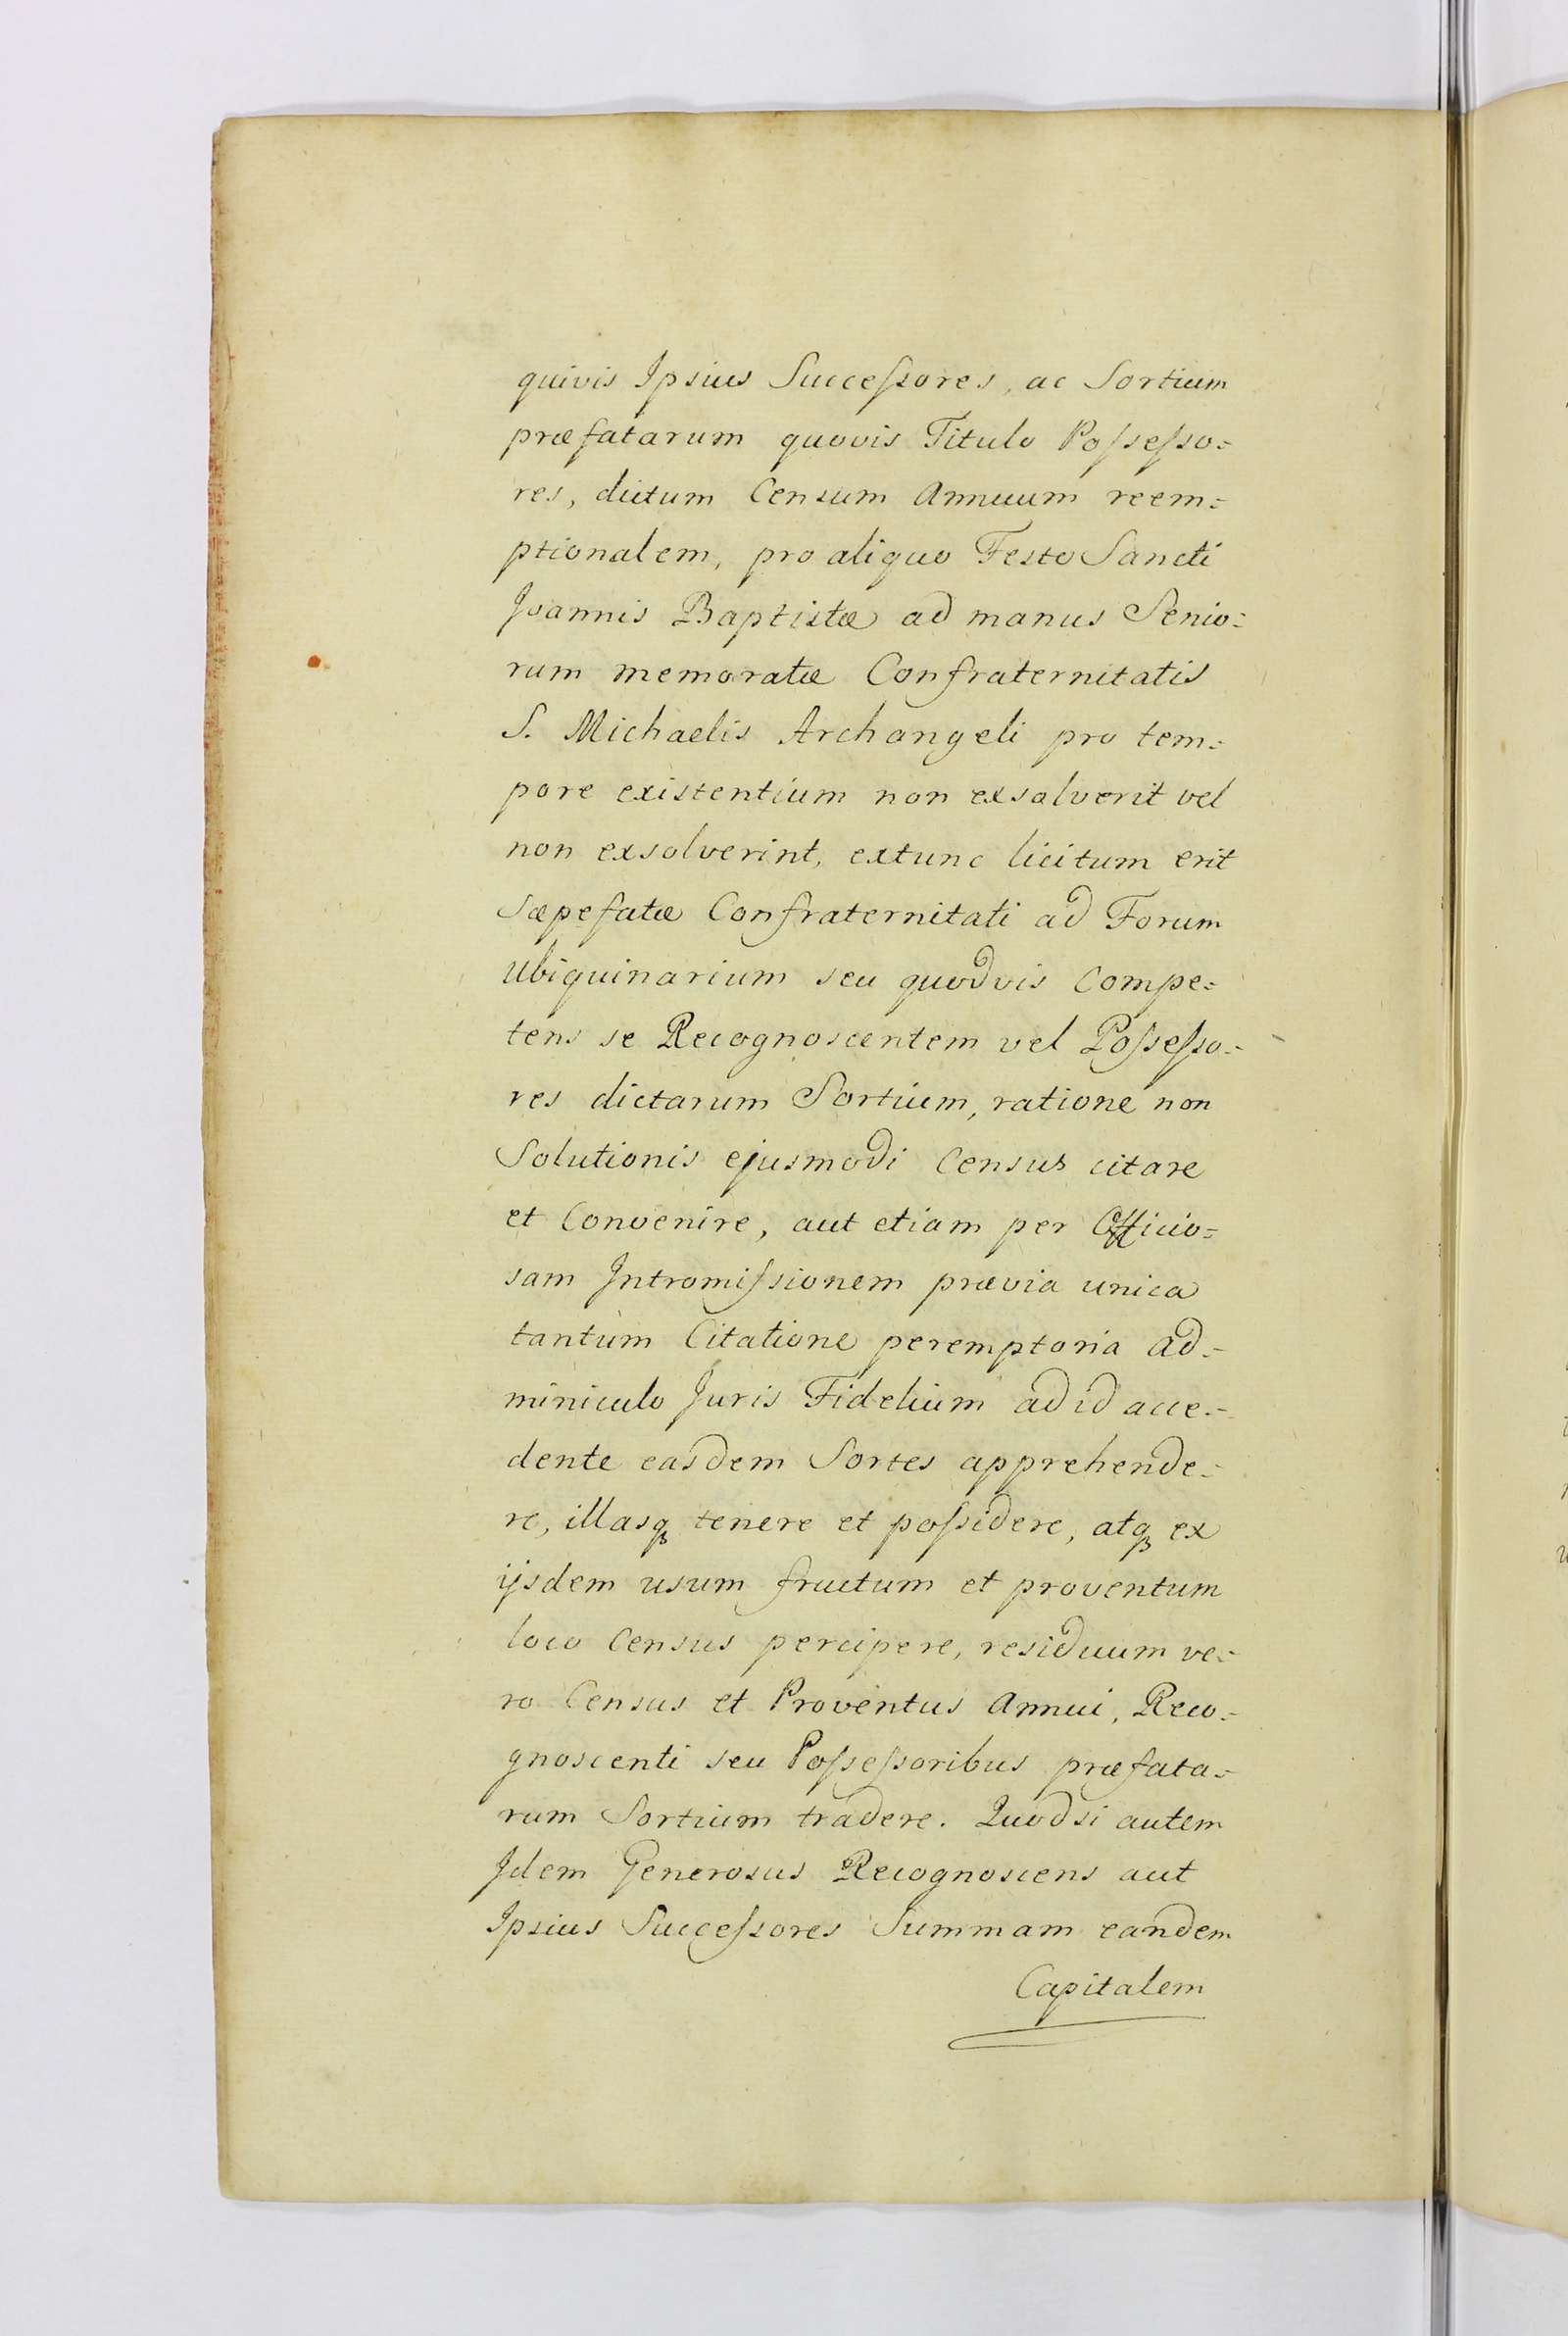 quivis Ipsius Succeſsores, ac Sortium
præfatarum quovis Titulo Poſseſso=
res, dictum Censum Annuum reem=
ptionalem, pro aliquo Festo Sancti
Joannis Baptistæ ad manus Senio=
rum memoratæ Confraternitatis
S. Michaelis Archangeli pro tem=
pore existentium non exsolverit vel
non exsolverint, extunc licitum erit
Sæpefatæ Confraternitati ad Forum
Ubiquinarium seu quodvis Compe=
tens se Recognoscentem vel Poſseſso=
res dictarum Sortium, ratione non
Solutionis ejusmodi Census citare
et Convenire, aut etiam per Officio=
sam Intromiſsionem prævia unica
tantùm Citatione peremptoria ad=
miniculo Juris Fidelium ad id acce=
dente easdem Sortes apprehende=
re, illasq₃ tenere et poſsidere, atq₃ ex
ijsdem usum fructum et proventum
loco Census percipere, residuum ve=
ro Census et Proventus Annui, Reco=
gnoscenti seu Poſseſsoribus præfata=
rum Sortium tradere. Quodsi autem
Idem Generosus Recognoscens aut
Ipsius Succeſsores Summam eandem
Capitalem